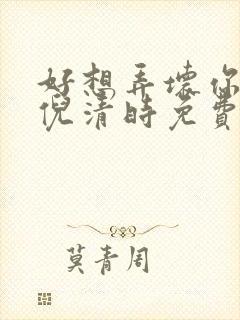 好想弄坏你
倪清時免費
莫青周